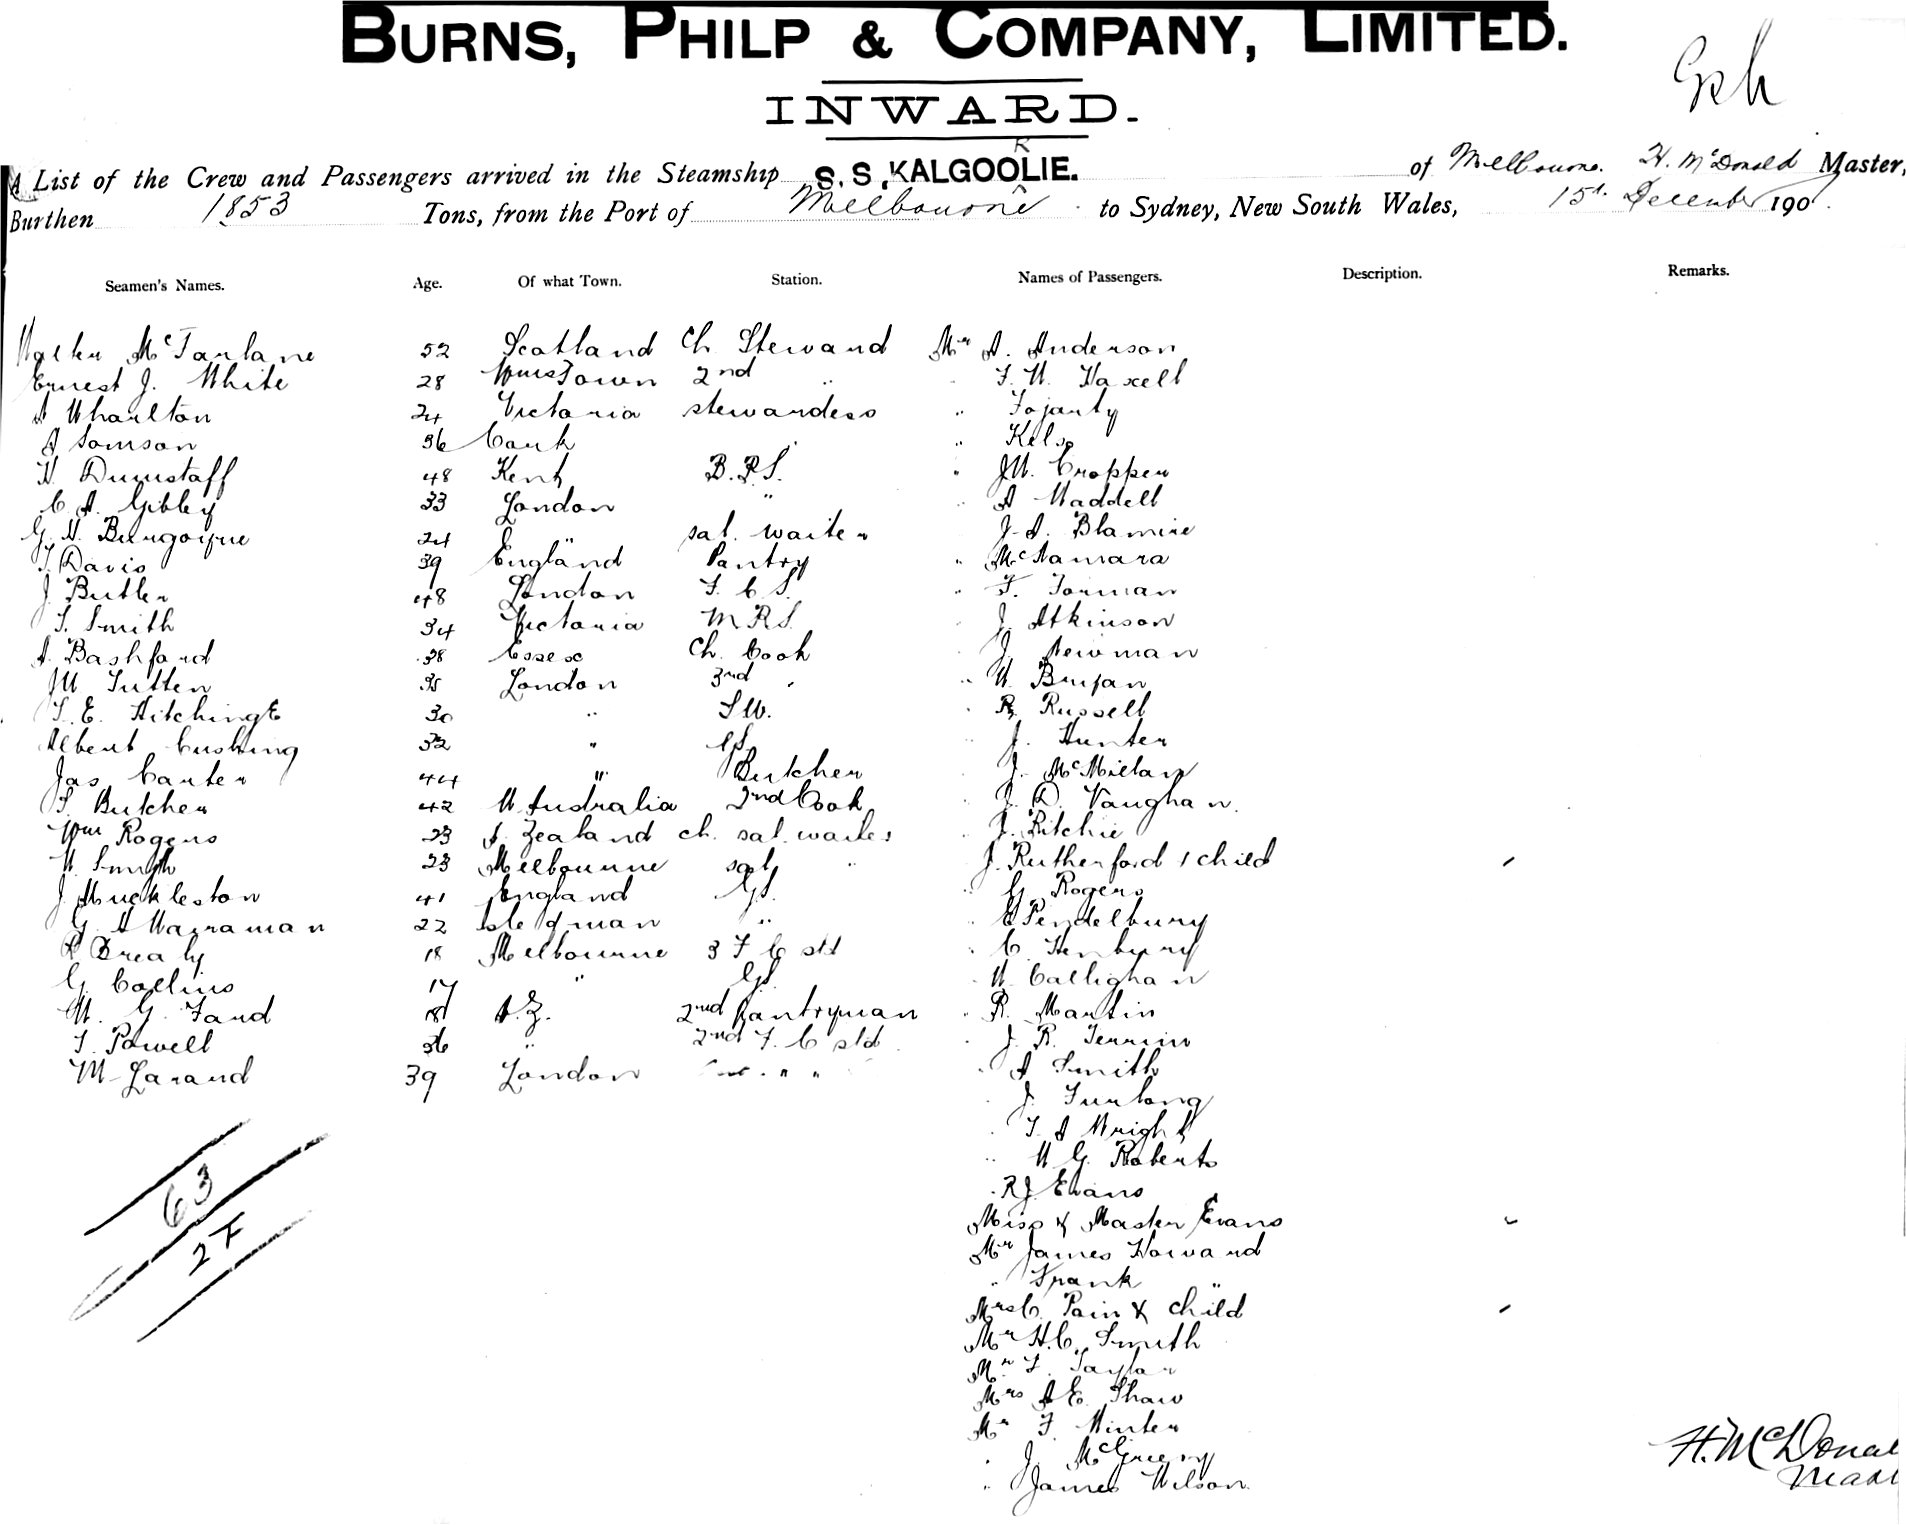 BURNS, PHILP & COMPANY, LIMITED.
INWARD.
A List of the Crew and Passengers arrived in the Steamship S.S. KALGOOLIE. of Melbourne. H. McDonald Master,
R
Burthen 1853 Tons, from the Port of Melbourne to Sydney, New South Wales, 15th December 190
Seamen's Names. Age. Of what Town. Station. Names of Passengers. Description. Remarks.
Walter McFarlane 52 Scotland Ch. Steward Mr A. Anderson
Ernest J. White 28 WmsTown 2nd " " F. W. Haxell
A Wharlton 24 Victoria stewardess " Fojarty
J Somson 36 Cork " Kelso
H. Dumstaff 48 Kent B.R.S. " J.W. Cropper
C. A. Gibley 33 London " " A Waddell
G. H. Burgoyne 24 " sal. waiter J. A. Blamire
T. Davis 39 England Pantry " McNamara
J. Butler 48 London F. C. S. " F. Forman
T. Smith 34 Victoria M.R.S. J. Atkinson
A. Bashford 38 Essex Ch. Cook J. Newman
W Sutten 35 London 3rd " " W. Bryan
S. E. Hitching 30 " S.W. " R. Russell
Albert Cushing 32 " G.S. J. Hunter
Jas Carter 44 " Butcher J. McMillan
S. Butcher 42 W Australia 2nd Cook J. D. Vaughan.
Wm Rogers 23 N. Zealand ch. sal. waiter J. Ritchie
W. Smyth 23 Melbourne sal " J. Rutherford 1 child
J. Muckleston 41 England G.S. " G. Rogers
G. A Warraman 22 Isle of man " " E Pendelbury
P Brealy 18 Melbourne 3 F C std C. Henbury
G. Collins 17 " G.S. W. Callighan
W. G. Fand 18 N.Z. 2nd Pantryman R. Martin
T. Powell 36 " 2nd F. C std J. R. Terrin
M Larand 39 London " " A Smith
J. Furlong
T. A Wright
" W G. Roberts
" R J. Evans
Miss & Master Evans
Mr James Howard
" Frank "
Mrs C. Pain & child
Mr H.C. Smith
Mr F. Taylor
Mrs A E. Shaw
Mr F. Winter
" J. McGreery
" James Wilson.
63
27
H. McDonal